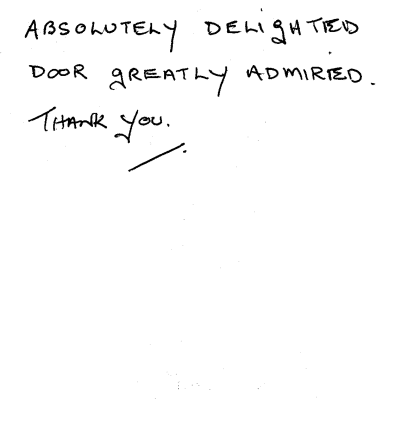 ABSOLUTELY DELIGHTED
DOOR GREATLY ADMIRED.
THANK YOU.